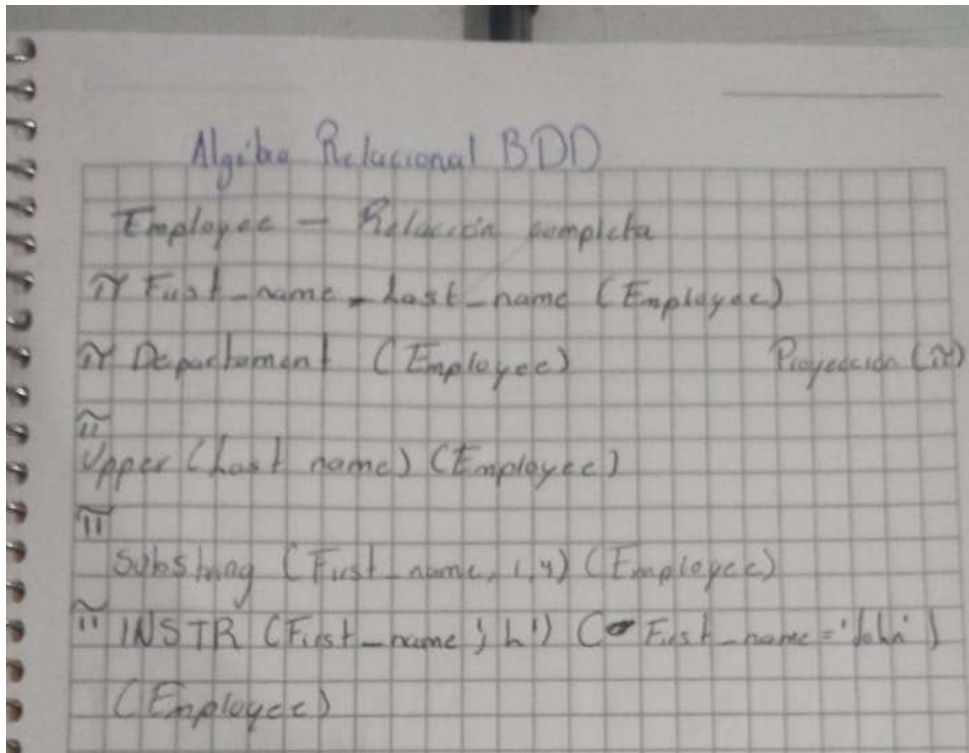 Algebra Relacional BDD
Employee - Relación completa
π First_name - Last_name (Employee)
π Departament (Employee) Proyección (π)
π
Upper (Last name) (Employee)
π
Substring (First_name, 1,4) (Employee)
π INSTR (First_name ', h') (σ First_name = 'John')
(Employee)